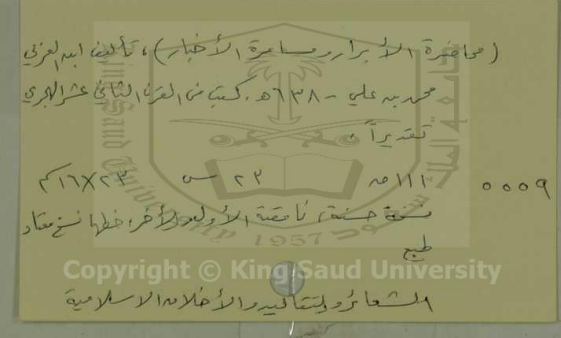 (محاضرة الأبرار ومسامرة الأخبار)، تأليف ابن العربي
محمد بن علي - ٦٣٨هـ. كتبت في القرن الثاني عشر الهجري
تقديراً.
٥٠٠٩ ١١١ ق ٢٣ س ٢٣×١٦سم
نسخة حسنة، ناقصة الأول والآخر، خطها نسخ معتاد
طبع
Copyright © King Saud University
الشعائر والتقاليد والأخلاق الاسلامية
King Saud University
1957